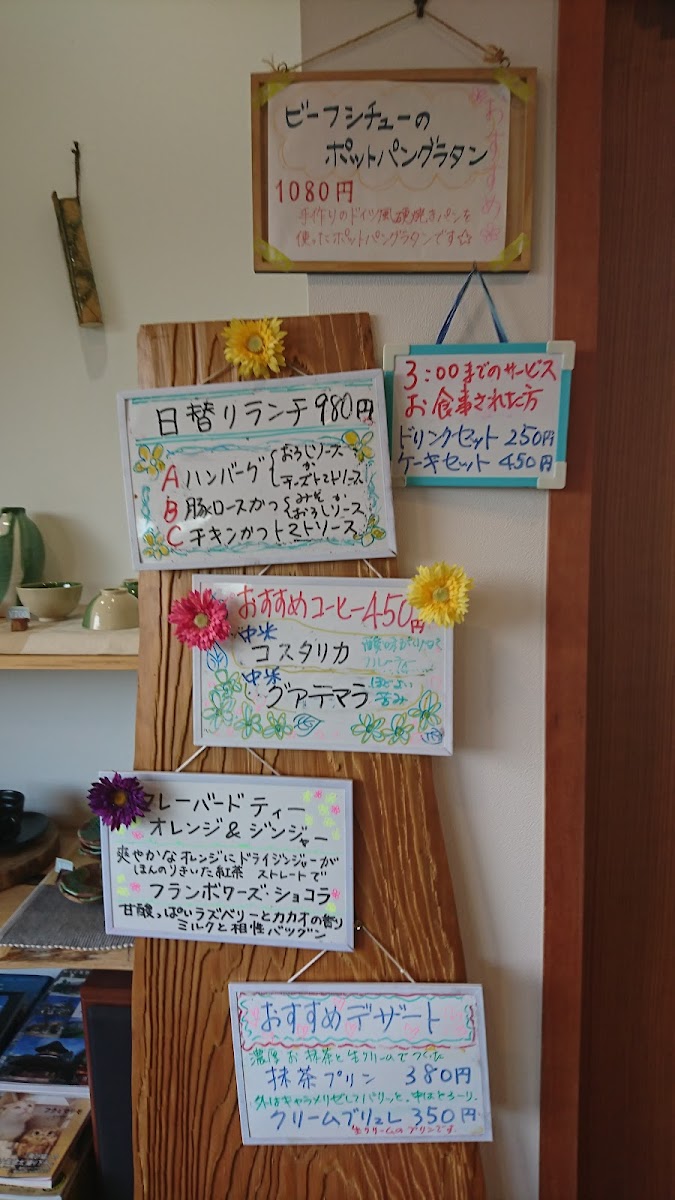 ビーフシチューの
ポットパングラタン
おすすめ
1080円
手作りのドイツ風硬焼きパンを
使ったポットパングラタンです☆
3:00までのサービス
お食事された方
ドリンクセット 250円
ケーキセット 450円
日替りランチ 980円
A ハンバーグ おろしソース
か
チーズトマトソース
B 豚ロースかつ みそ か
おろしソース
C チキンかつ トマトソース
おすすめコーヒー 450円
中米
コスタリカ
フルーティー
中米
グアテマラ ほどよい
苦み
フレーバード ティー
オレンジ & ジンジャー
爽やかなオレンジにドライジンジャーが
ほんのりきいた紅茶 ストレートで
フランボワーズ・ショコラ
甘酸っぱいラズベリーとカカオの香り
ミルクと相性バツグン
おすすめデザート
濃厚お抹茶と生クリームでつくった
抹茶プリン 380円
外はキャラメリゼしてパリッと、中はとろーり。
クリームブリュレ 350円
生クリームのプリンです。